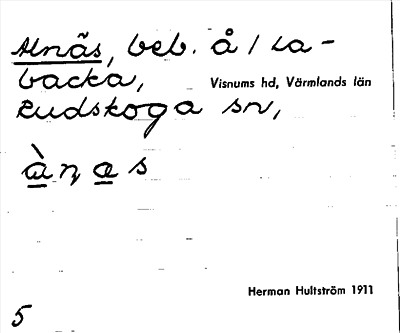 Alnäs, beb. å / La-
backa, Visnums hd, Värmlands län
Rudskoga sn,
ànas
Herman Hultström 1911
5